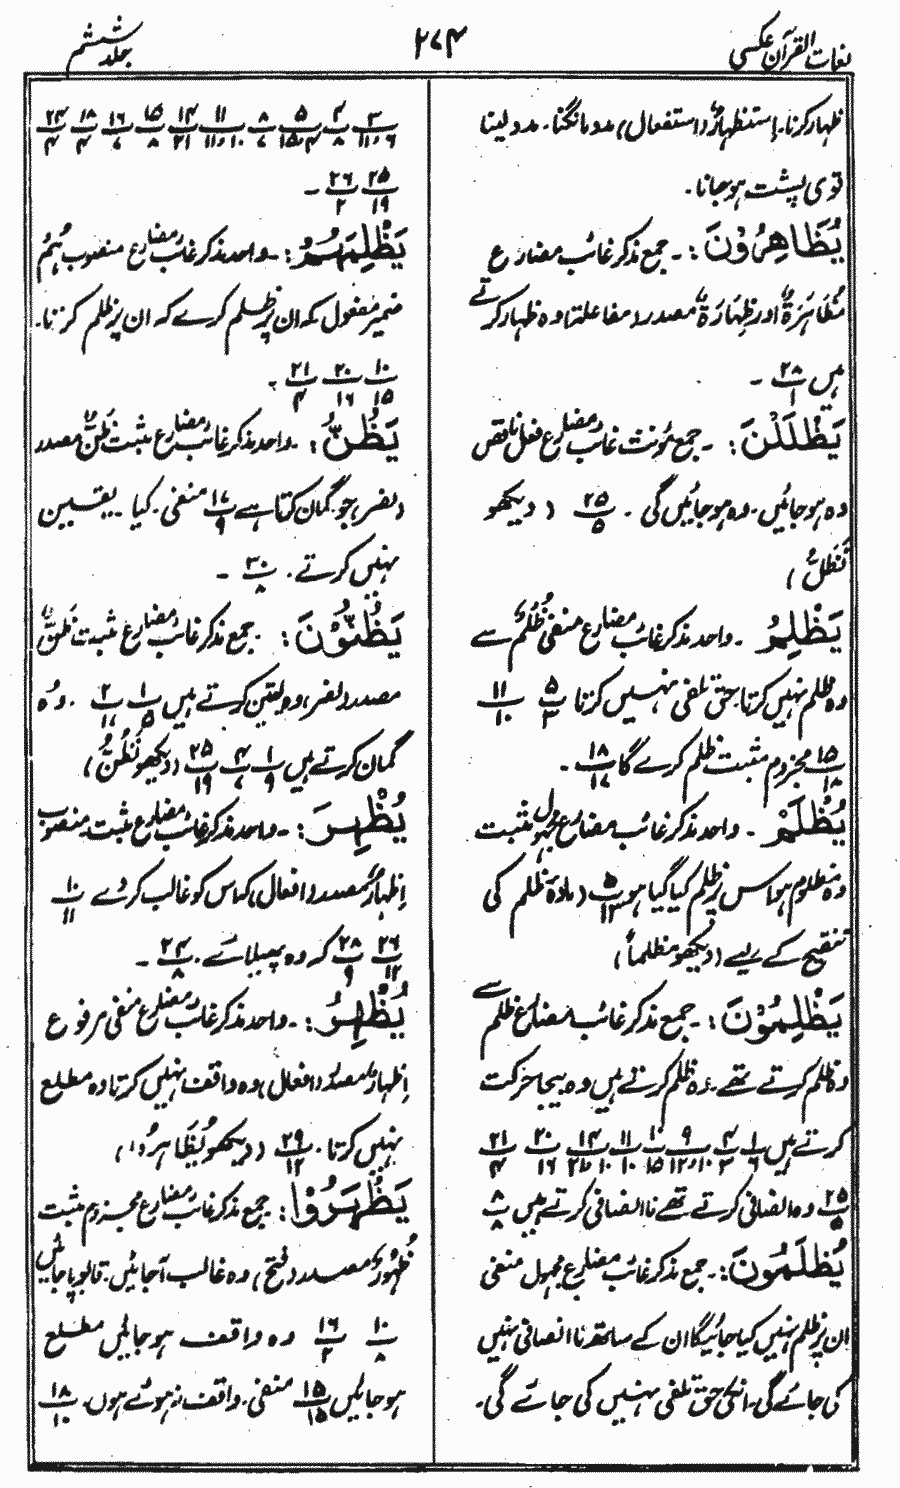 لغات القرآن عکسی
۲۷۴
جلد ششم
ظہار کرنا۔ اِستظہارٌ (استفعال) مدد مانگنا۔ مدد لینا
قوی پشت ہو جانا۔
يَظَّاهِرُوْنَ :۔ جمع مذکر غائب مضارع
مُظَاہَرَۃٌ اور ظِہَارَۃٌ مصدر (مفاعلۃ) وہ ظہار کرتے
ہیں ۲۸/۱ ۔
يَظْلَلْنَ :۔ جمع مؤنث غائب مضارع فعل ناقص
وہ ہو جائیں۔ وہ ہو جائیں گی ۔ ۲۵/۵ ( دیکھو
تَظَلُّ )
يَظْلِمُ ۔ واحد مذکر غائب مضارع منفی ظُلْمٌ سے
وہ ظلم نہیں کرتا۔ حق تلفی نہیں کرتا ۵/۳ ۱۱/۱۰
۱۵/۱۸ مجزوم مثبت ظلم کرے گا ۱۸/۱۷ ۔
يُظْلَمْ ۔ واحد مذکر غائب مضارع مجہول مثبت
وہ مظلوم ہوا س پر ظلم کیا گیا ہو ۵/۱۳ (مادۂ ظلم کی
تنقیح کے لیے (دیکھو مظلماً)
يَظْلِمُوْنَ :۔ جمع مذکر غائب مضارع ظلم سے
وہ ظلم کرتے تھے۔ وہ ظلم کرتے ہیں وہ بیجا حرکت
کرتے ہیں ۱/۶ ۴/۳ ۹/۱۰،۱۲ ۱۰/۱۵ ۱۱/۱۰ ۱۴/۱۰،۲۱ ۲۰/۱۶ ۲۱/۴
۲۵/۵ وہ انصافی کرتے تھے نا انصافی کرتے ہیں ۸/۸
يُظْلَمُوْنَ :۔ جمع مذکر غائب مضارع مجہول منفی
ان پر ظلم نہیں کیا جائیگا ان کے ساتھ نا انصافی نہیں
کی جائے گی۔ انکی حق تلفی نہیں کی جائے گی۔
۳/۶،۱۱ ۴/۸ ۵/۴،۱۵ ۸/۷ ۱۱/۱۰،۱۱ ۱۴/۲۱ ۱۵/۸ ۱۶/۷ ۱۸/۴ ۲۴/۴
۲۵/۱۹ ۲۶/۲ ۔
يَظْلِمَهُمْ :۔ واحد مذکر غائب مضارع منصوب ہُمْ
ضمیر مفعول کہ ان پر ظلم کرے کہ ان پر ظلم کرنا۔
۱۰/۱۵ ۲۰/۱۶ ۲۱/۴ ۔
يَظُنُّ :۔ واحد مذکر غائب مضارع مثبت ظَنٌّ مصدر
(نصر) جو گمان کرتا ہے ۱۷/۹ منفی۔ کیا یقین
نہیں کرتے ۔ ۳۰/۸ ۔
يَظُنُّوْنَ :۔ جمع مذکر غائب مضارع مثبت ظَنٌّ
مصدر (نصر) وہ یقین کرتے ہیں ۱/۵ ۲/۱۷ ۔ وہ
گمان کرتے ہیں ۱/۹ ۴/۷ ۲۵/۱۹ (دیکھو تَظُنُّ)
يُظْهِرَ :۔ واحد مذکر غائب مضارع مثبت منصوب
اِظہارٌ مصدر (افعال) کہ اس کو غالب کر دے ۱۰/۱۱
۲۶/۱۲ ۲۸/۹ کہ وہ پھیلائے۔ ۲۴/۸ ۔
يُظْهِرُ :۔ واحد مذکر غائب مضارع منفی مرفوع
اِظہارٌ مصدر (افعال) وہ واقف نہیں کرتا وہ مطلع
نہیں کرتا ۔ ۲۹/۱۲ (دیکھو يُظَاہِرُوْا)
يَظْهَرُوْا :۔ جمع مذکر غائب مضارع مجزوم مثبت
ظُہُوْرٌ مصدر (فتح) وہ غالب آجائیں۔ قابو پا جائیں
۱۰/۸ ۱۶/۲ وہ واقف ہو جائیں مطلع
ہو جائیں ۱۵/۱۵ منفی۔ واقف نہ ہوئے ہوں۔ ۱۸/۱۰